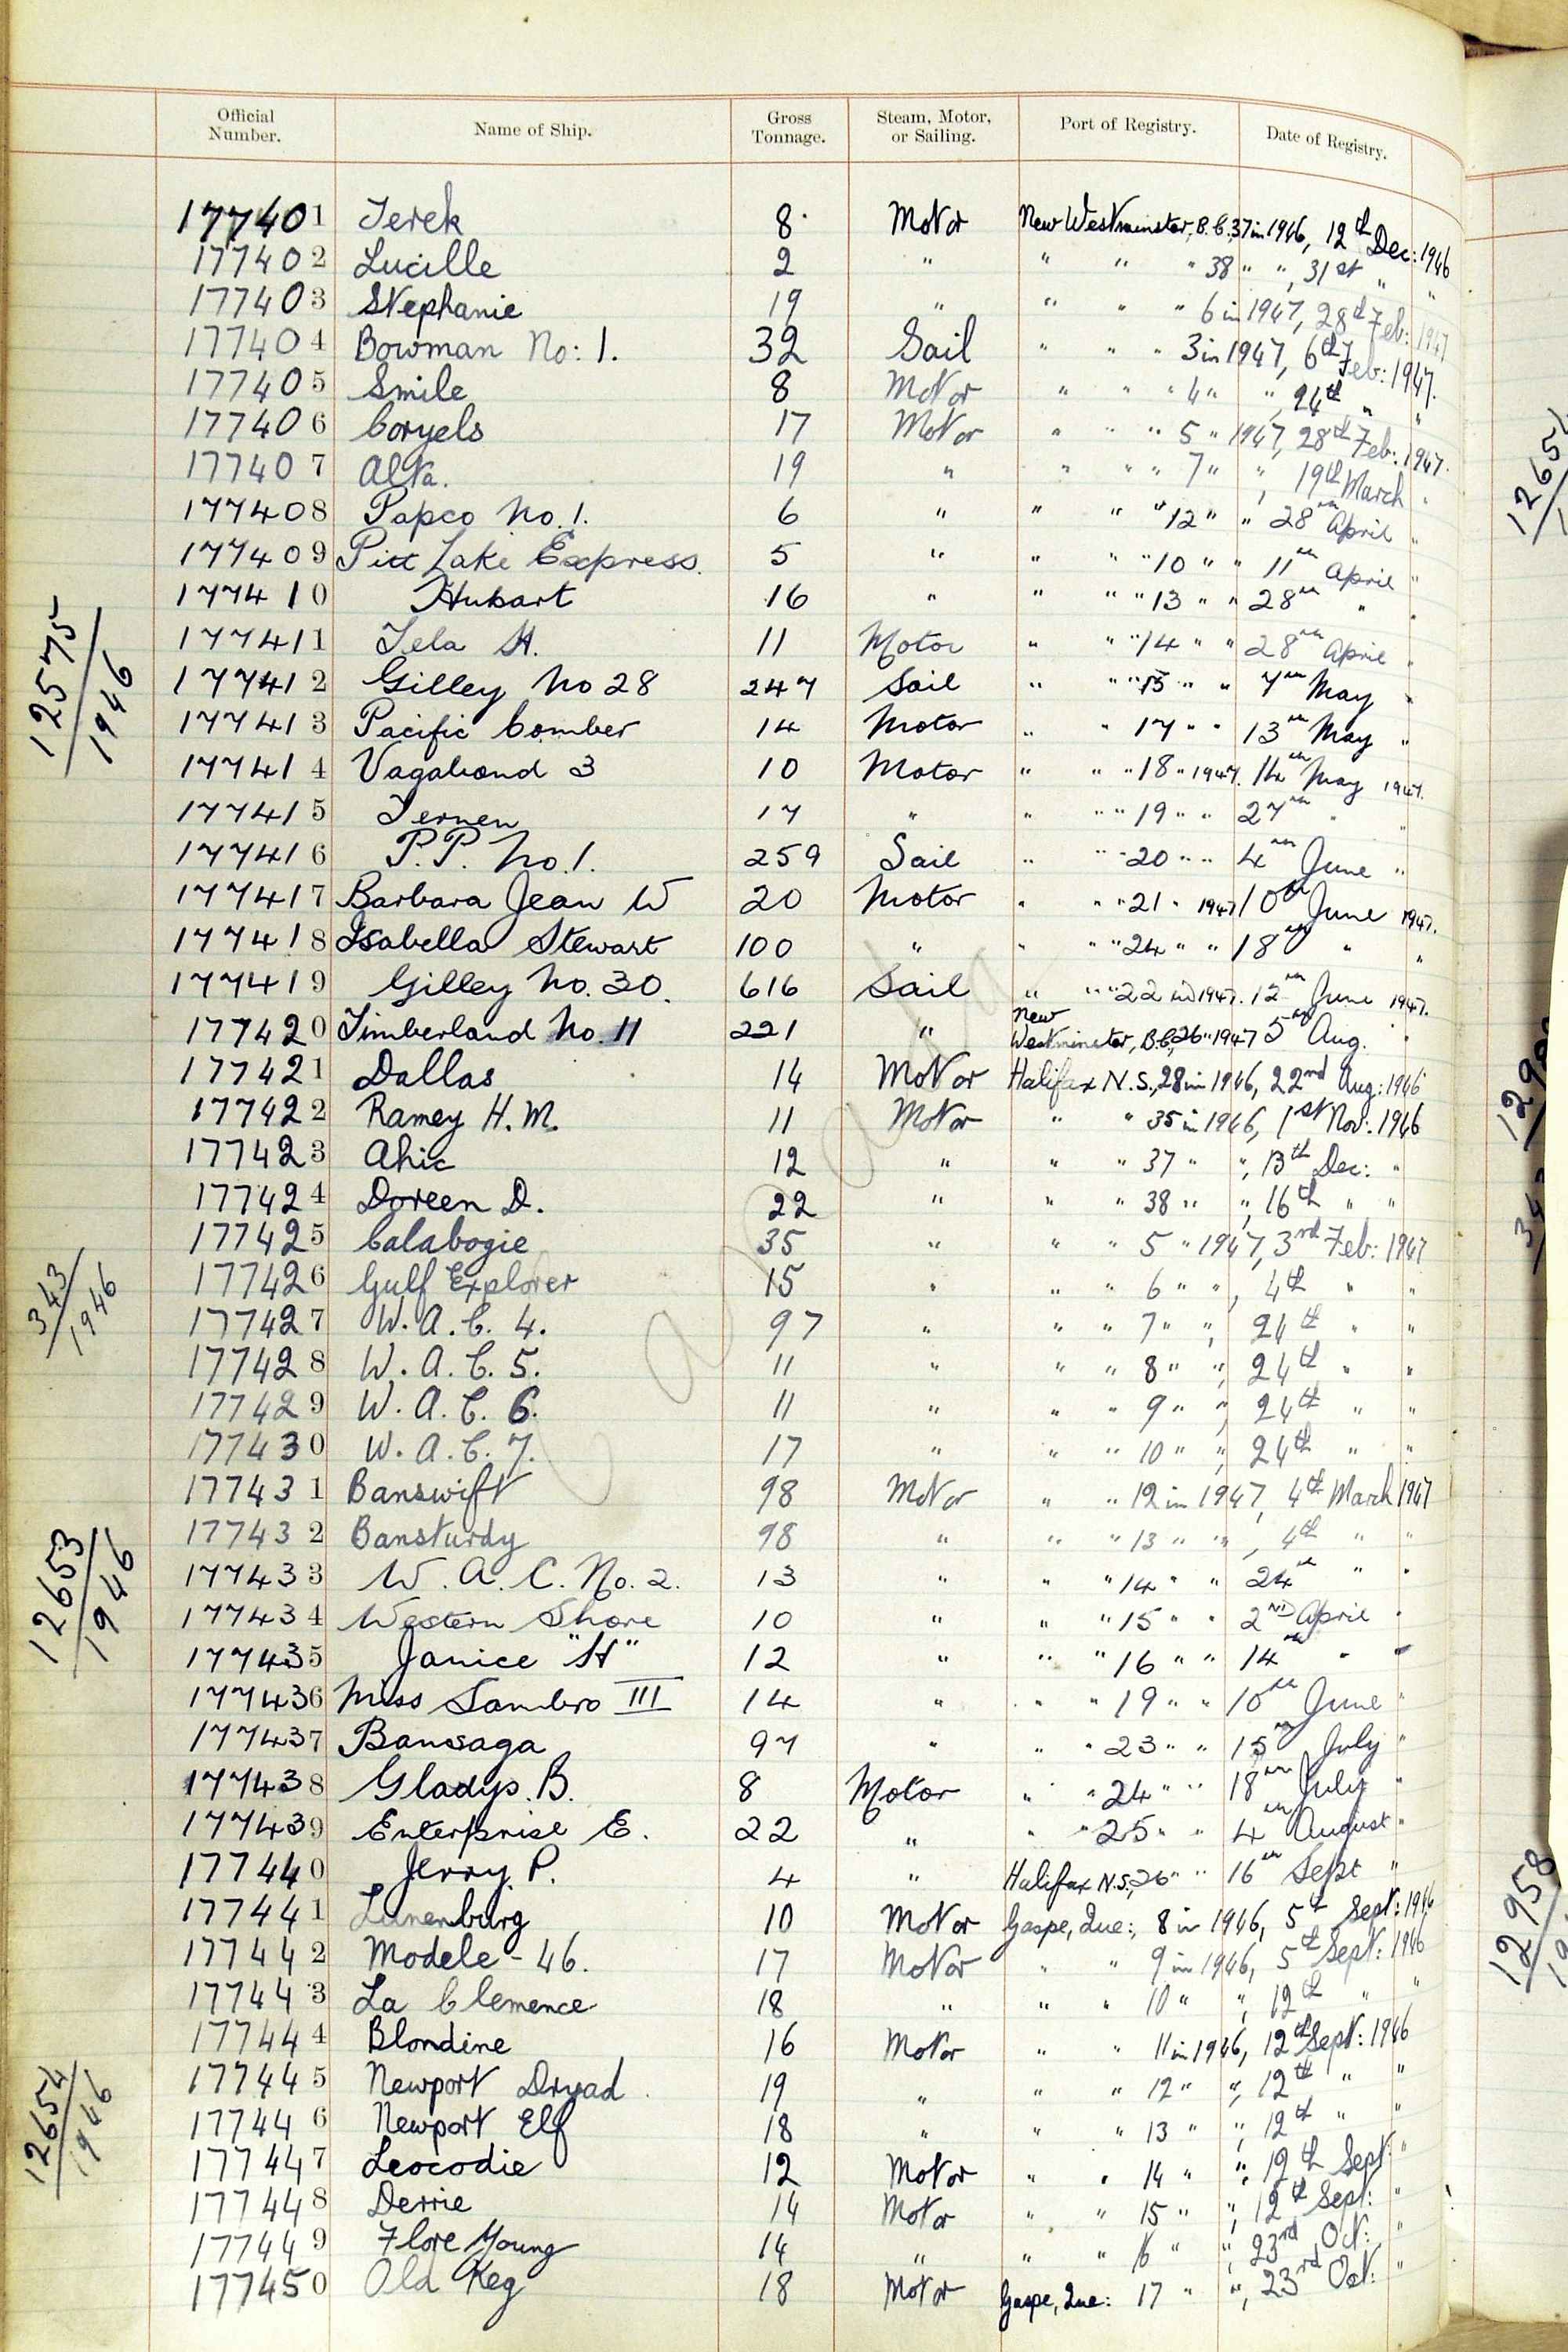 Official Number. Name of Ship. Gross Tonnage. Steam, Motor, or Sailing. Port of Registry. Date of Registry.
177401 Terek 8 Motor New Westminster, B.C. 37 in 1946, 12th Dec: 1946
177402 Lucille 2 " " " " 38 " ", 31st " "
177403 Stephanie 19 " " " " 6 in 1947, 28th Feb: 1947
177404 Bowman No: 1. 32 Sail " " " 3 in 1947, 6th Feb: 1947.
177405 Smile 8 Motor " " " 4 " ", 24th " "
177406 Coryels 17 Motor " " " 5 " 1947, 28th Feb: 1947.
177407 Alta. 19 " " " " 7 " ", 19th March "
177408 Papco No. 1. 6 " " " " 12 " " 28th April "
177409 Pitt Lake Express. 5 " " " " 10 " " 11th April "
177410 Hubart 16 " " " " 13 " " 28th " "
177411 Tela H. 11 Motor " " " 14 " " 28th April "
177412 Gilley No 28 247 Sail " " " 15 " " 7th May "
177413 Pacific Comber 14 Motor " " 17 " " 13th May "
177414 Vagabond 3 10 Motor " " " 18 " 1947. 14th May 1947.
177415 Ternen 17 " " " " 19 " " 27th " "
177416 P.P. No. 1. 259 Sail " " " 20 " " 4th June "
177417 Barbara Jean W 20 Motor " " " 21 " 1947 10th June 1947.
177418 Isabella Stewart 100 " " " " 24 " " 18th " "
177419 Gilley No. 30. 616 Sail " " " 22 in 1947. 12th June 1947.
177420 Timberland No. 11 221 " New Westminster, B.C., 26 " 1947 5th Aug. "
177421 Dallas 14 Motor Halifax N.S., 28 in 1946, 22nd Aug: 1946
177422 Ramey H.M. 11 Motor " " 35 in 1946, 1st Nov: 1946
177423 Ahic 12 " " " 37 " ", 13th Dec: "
177424 Doreen D. 22 " " " 38 " ", 16th " "
177425 Calabogie 35 " " " 5 " 1947, 3rd Feb: 1947
177426 Gulf Explorer 15 " " " 6 " ", 4th " "
177427 W.A.C. 4. 97 " " " 7 " ", 24th " "
177428 W.A.C. 5. 11 " " " 8 " ", 24th " "
177429 W.A.C. 6. 11 " " " 9 " ", 24th " "
177430 W.A.C. 7. 17 " " " 10 " ", 24th " "
177431 Banswift 98 Motor " " 12 in 1947, 4th March 1947
177432 Bansturdy 98 " " " 13 " ", 4th " "
177433 W.A.C. No. 2. 13 " " " 14 " " 24th " "
177434 Western Shore 10 " " " 15 " " 2nd April "
177435 Janice "H" 12 " " " 16 " " 14th " "
177436 Miss Sambro III 14 " " " 19 " " 10th June "
177437 Bansaga 97 " " " 23 " " 15th July "
177438 Gladys. B. 8 Motor " " 24 " " 18th July "
177439 Enterprise E. 22 " " " 25 " " 4th August "
177440 Jerry. P. 4 " Halifax N.S., 26 " " 16th Sept "
177441 Lunenburg 10 Motor Gaspe, Que:, 8 in 1946, 5th Sept: 1946
177442 Modele - 46. 17 Motor " " 9 in 1946, 5th Sept: 1946
177443 La Clemence 18 " " " 10 " ", 12th " "
177444 Blondine 16 Motor " " 11 in 1946, 12th Sept: 1946
177445 Newport Dryad 19 " " " 12 " ", 12th " "
177446 Newport Elf 18 " " " 13 " ", 12th " "
177447 Leocodie 12 Motor " " 14 " ", 12th Sept: "
177448 Derrie 14 Motor " " 15 " ", 12th Sept: "
177449 Flore Young 14 " " " 16 " ", 23rd Oct: "
177450 Old Reg 18 Motor Gaspe, Que: 17 " ", 23rd Oct: "
12575/1946
343/1946
12653/1946
12654/1946
Canada
12958